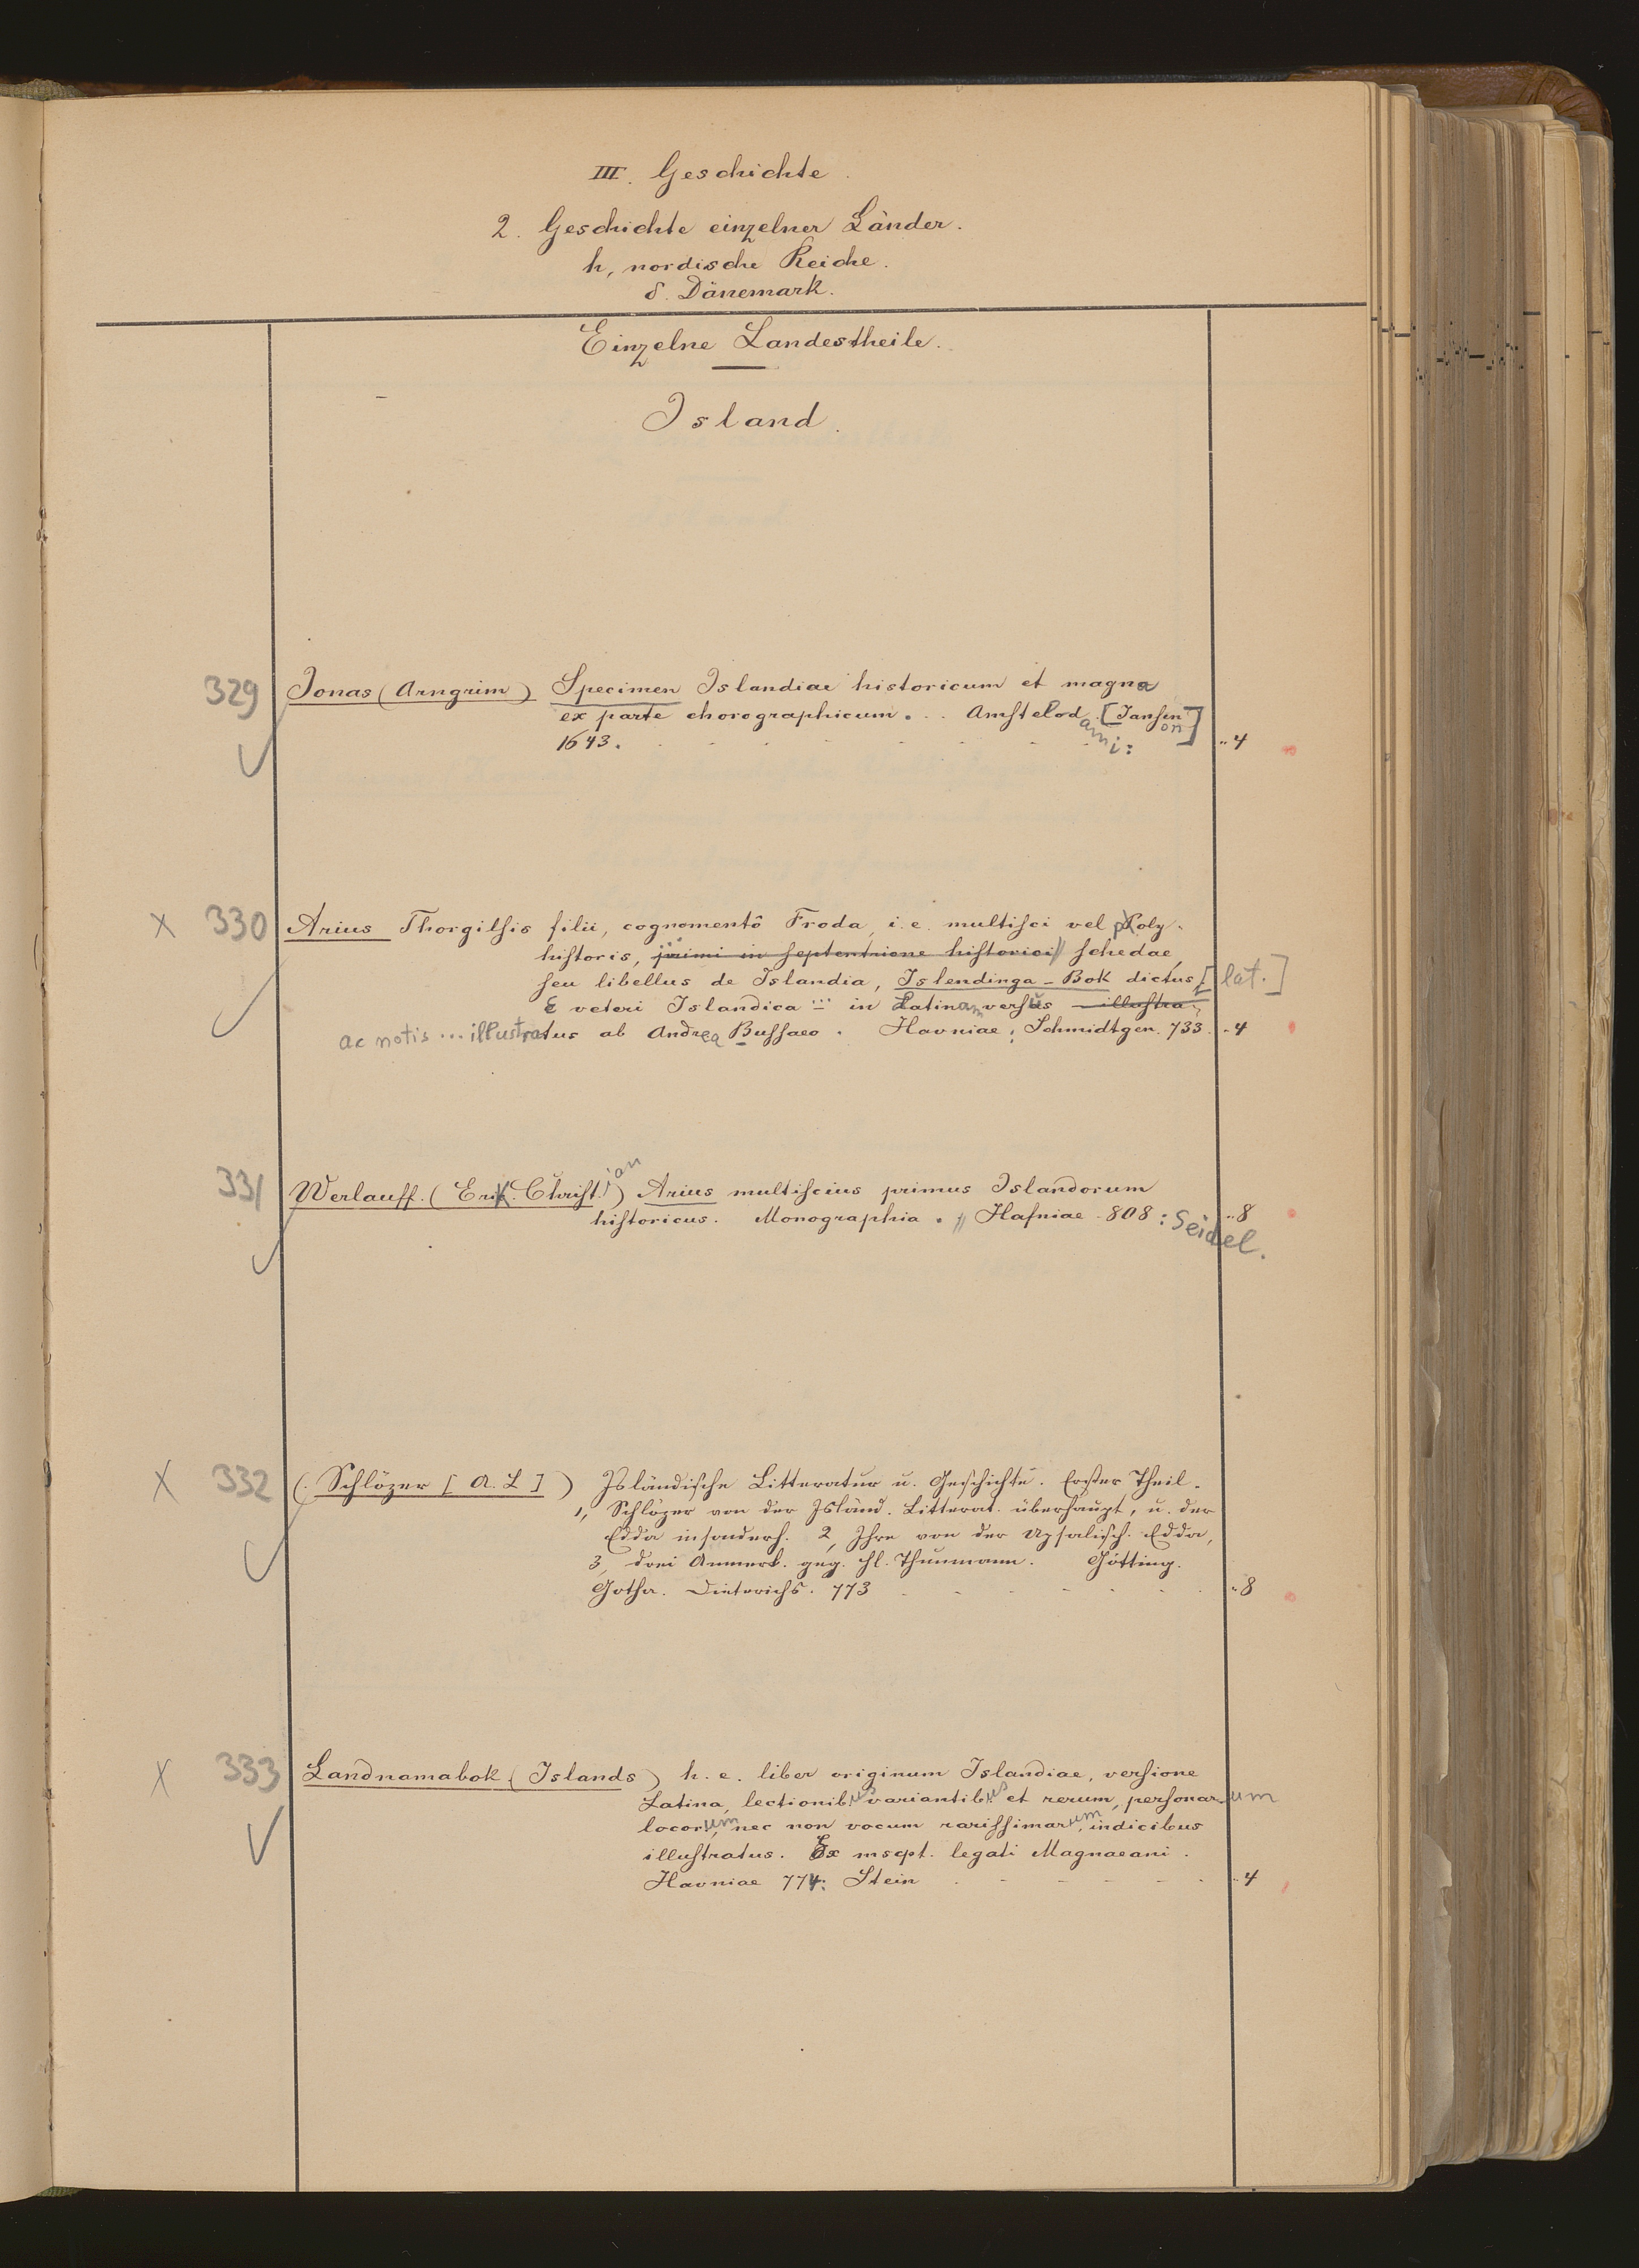 III. Geschichte.
2. Geschichte einzelner Länder.
h, nordische Reiche.
δ. Dänemark.
Einzelne Landestheile.
Island.
329 Jonas (Arngrim) Specimen Islandiae historicum et magna
ex parte chorographicum... Amstelodami: [Jansson]
1643. "4
X 330 Arius Thorgilsis filii, cognomentô Froda, i. e. multisci vel poly-
historis, ... primi in septentrione historici schedae,
seu libellus de Islandia, Islendinga-Bok dictus, [lat.]
E veteri Islandica ... in Latinam versus illustra-
ac notis ... illustratus ab Andrea Bussaeo. Havniae: Schmidtgen. 733. "4
331 Werlauff. (Erik. Christian) Arius multiscius primus Islandorum
historicus. Monographia. Hafniae 808: Seidel. "8
X 332 (Schlözer [A. L]) Isländische Litteratur u. Geschichte. Erster Theil.
1, Schlözer von der Isländ. Litterat. überhaupt, u. der
Edda insonderh. 2, Ihre von der Upsalisch. Edda,
3, drei Anmerk. geg. H. Thunmann. Götting.
Gotha. Dieterichs. 773 "8
X 333 Landnamabok (Islands) h. e. liber originum Islandiae, versione
Latina, lectionibus variantibus et rerum, personarum
locorum, nec non vocum rarissimarum, indicibus
illustratus. Ex mscpt. legati Magnaeani.
Havniae 774: Stein "4